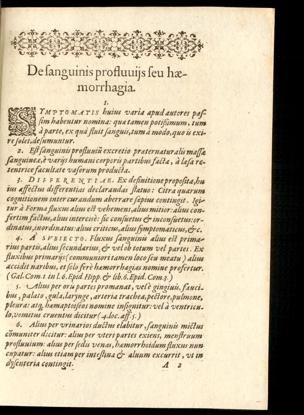 De sanguinis profluuijs seu hæ-
morrhagia.
1.
SYMPTOMATIS huius varia apud autores pas-
sim habentur nomina: quæ tamen potissimum, tum
à parte, ex qua fluit sanguis, tum à modo, quo is exi-
re solet, desumuntur.
2. Est sanguinis profluuiũ excretio præternaturalis massæ
sanguineæ, à varijs humani corporis partibus facta, à læsa re-
tentrice facultate vasorum producta.
3. DIFFERENTIAE. Ex definitione proposita, hu
ius affectus differentias declarandas statuo: Citra quarum
cognitionem inter curandum aberrare sæpius contingit. Igi-
tur à Forma fluxus alius est vehemens, alius mitior: alius con-
fertim factus, alius intercisè: sic consuetus & inconsuetus: or-
dinatus, inordinatus: alius criticus, alius symptomaticus, &c.
4. A SVBIECTO. Fluxus sanguinis alius est prima-
rius partis, alius secundarius, & vel ob totum vel partes. Ex
fluxibus primarijs (communiori tamen loco seu meatu) alius
accidit naribus, et solis ferè hæmorrhagiæ nomine profertur.
(Gal. Com 1. in l. 6. Epid. Hipp. & lib. 6. Epid. Com 3.)
5. Alius per oris partes promanat, vel è gingiuis, fauci-
bus, palato, gula, larynge, arteria trachea, pectore, pulmone,
pleura: atq; hæmoptoicos nomine insignitur: vel à ventricu-
lo, vomitus cruentus dicitur (4. loc. aff. 5.)
6. Alius per vrinarios ductus elabitur, sanguinis mictus
cõmuniter dicitur: alius per vteri partes exiens, menstruum
profluuium: alius per sedis venas, hæmorrhoidum fluxus nun
cupatur: alius etiam per intestina & aluum excurrit, vt in
dysenteria contingit.
A 2